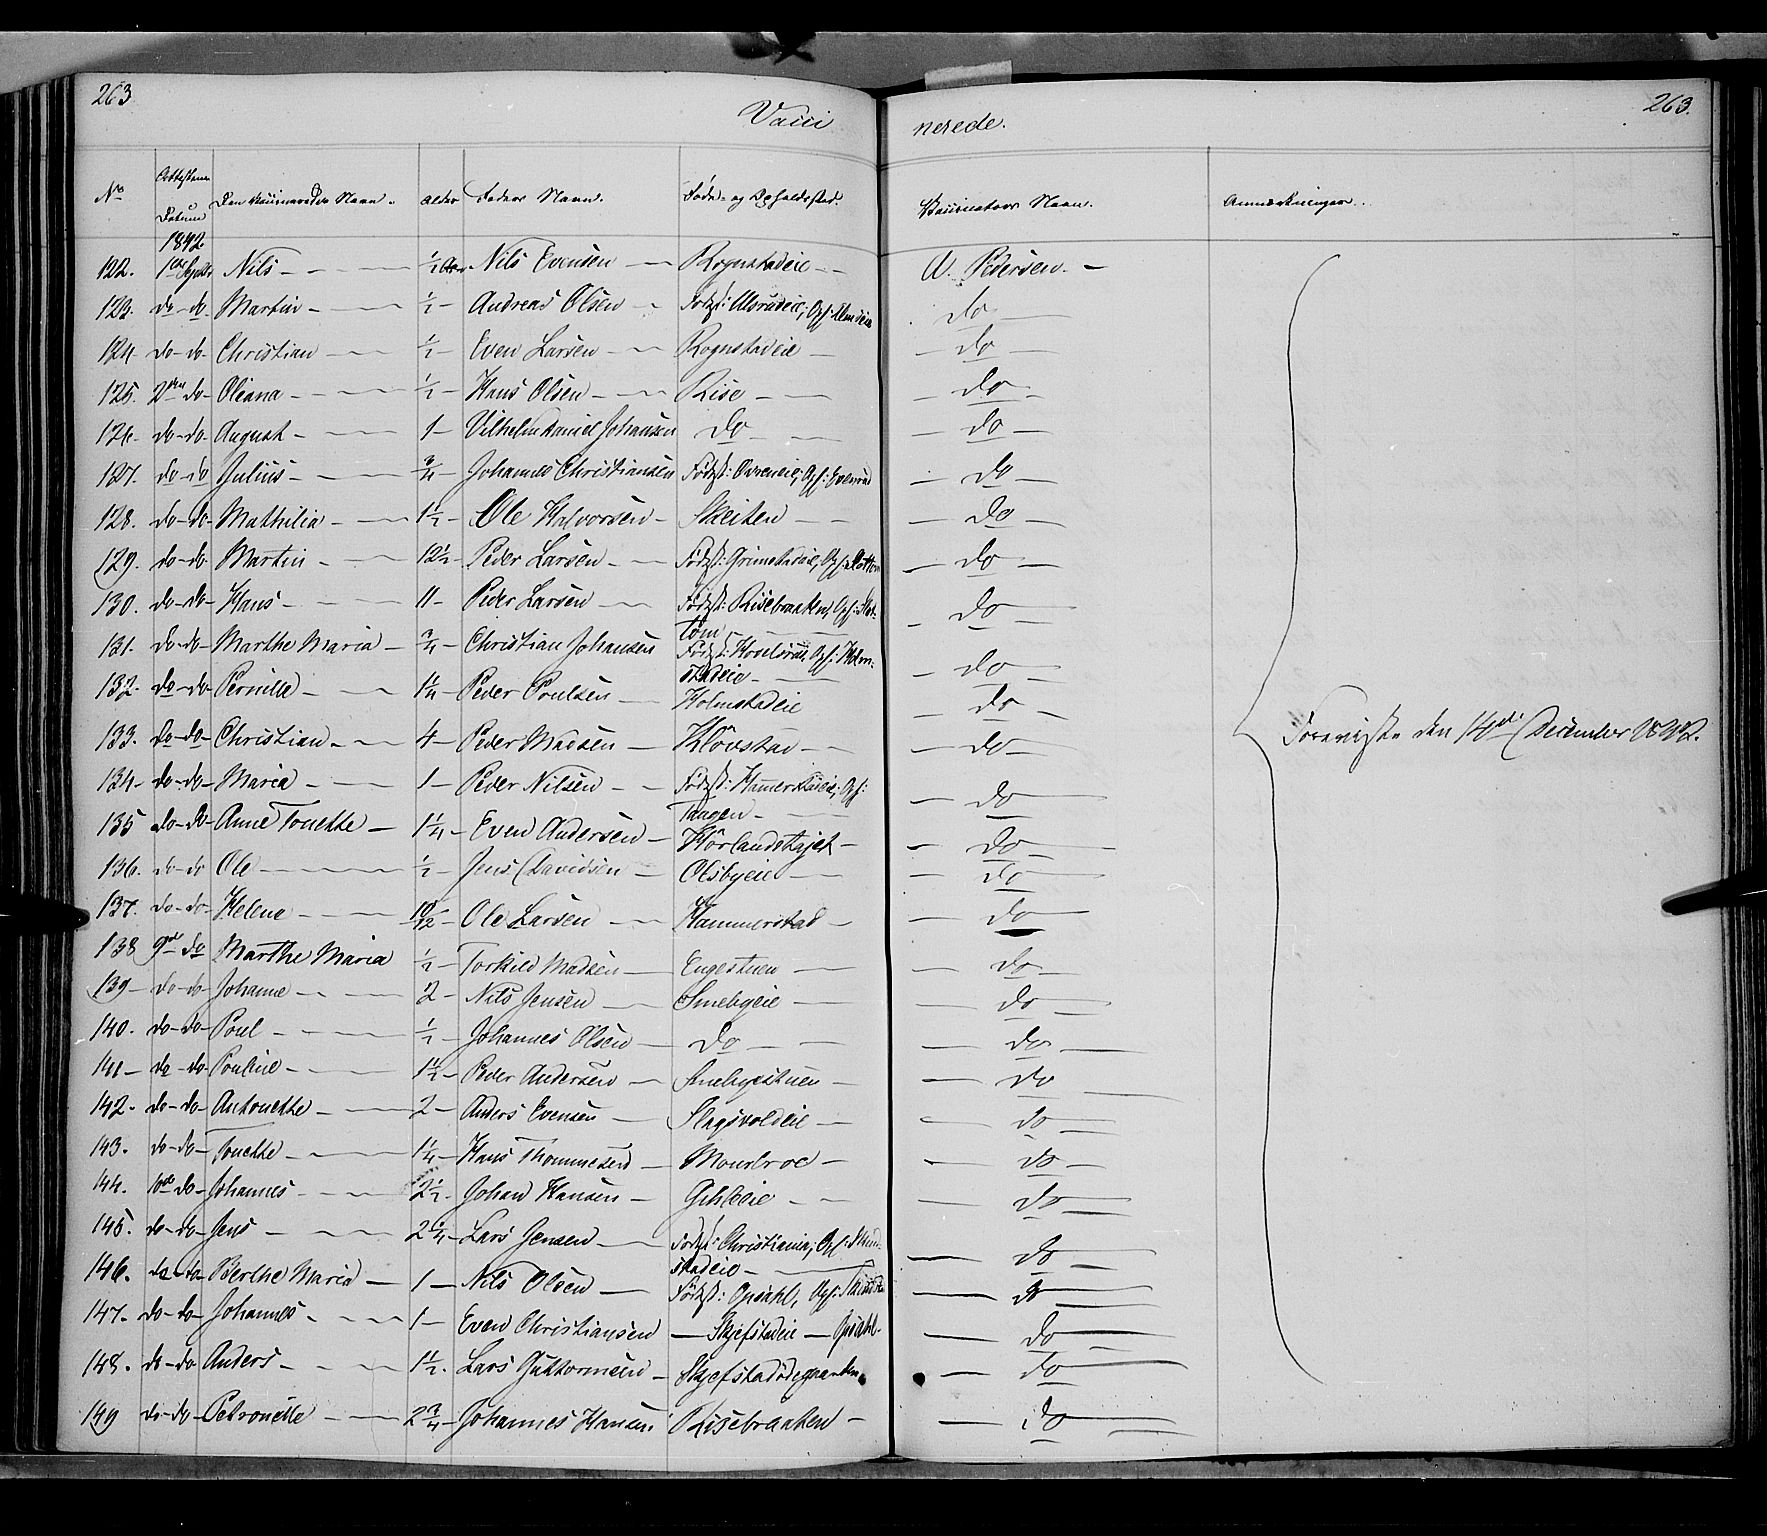 263
Vacci
nerede.
263.
No Attestens Datum Den Vaccineredes Navn. Alder Faders Navn. Føde- og Opholdssted. Vaccinateurs Navn. Anmærkninger.
1842
122. 1ste Septbr Nils ½ Aar Nils Evensen Rognstadeie A. Pedersen.
123. do do Martin ½ Andreas Olsen Fødest: Ulsrudeie, Oph:
do
124. do do Christian ½ Even Larsen Rognstadeie do
125. 2den do Oleana ½ Hans Olsen Rise do
126. do do August 1 Vilhelm Daniel Johansen do do
127. do do Julius ¾ Johannes Christiansen Fødest: Oph: Evenrud do
128. do do Mathilia 1½ Ole Halvorsen Skeiten do
129. do do Martin 12½ Peder Larsen Fødest: Grimstadeie, Oph: do
130. do do Hans 11 Peder Larsen Fødest: Risebraaten, Oph: do
131. do do Marthe Maria ¾ Christian Johansen Fødest: Oph: Holm-
stadeie do
132. do do Pernille 1¼ Peder Poulsen Holmstadeie do
133. do do Christian 4 Peder Madsen Kløvstad do
Forevist den 14de December 1842.
134. do do Maria 1 Peder Nilsen Fødest: Hamerstadeie, Oph:
Tangen do
135 do do Anne Tonette 1¼ Even Andersen do
136. do do Ole ½ Jens Davidsen Olsbyeie do
137. do do Helene 10/12 Ole Larsen Hammerstad do
138 9de do Marthe Maria ½ Torkild Madsen Engestuen do
139 do do Johanne 2 Nils Jensen Smebyeie do
140. do do Poul ½ Johannes Olsen do do
141 do do Pouline 1½ Peder Andersen Smebyestuen do
142. do do Antonette 2 Anders Evensen Slagsvoldeie do
143. do do Tonette 1¼ Hans Thommesen Monsbroe do
144. 10de do Johannes 2½ Johan Hansen do
145. do do Jens 2¼ Lars Jensen Fødest: Christiania, Oph:
stadeie do
146. do do Berthe Maria 1 Nils Olsen Fødest: Opsahl, Oph: do
147. do do Johannes 1 Even Christiansen — Skjefstadeie — Opsahl. do
148. do do Anders 1½ Lars Guttormsen Skjefstadødegaarden do
149 do do Petronelle 2¾ Johannes Hansen Risebraaten do